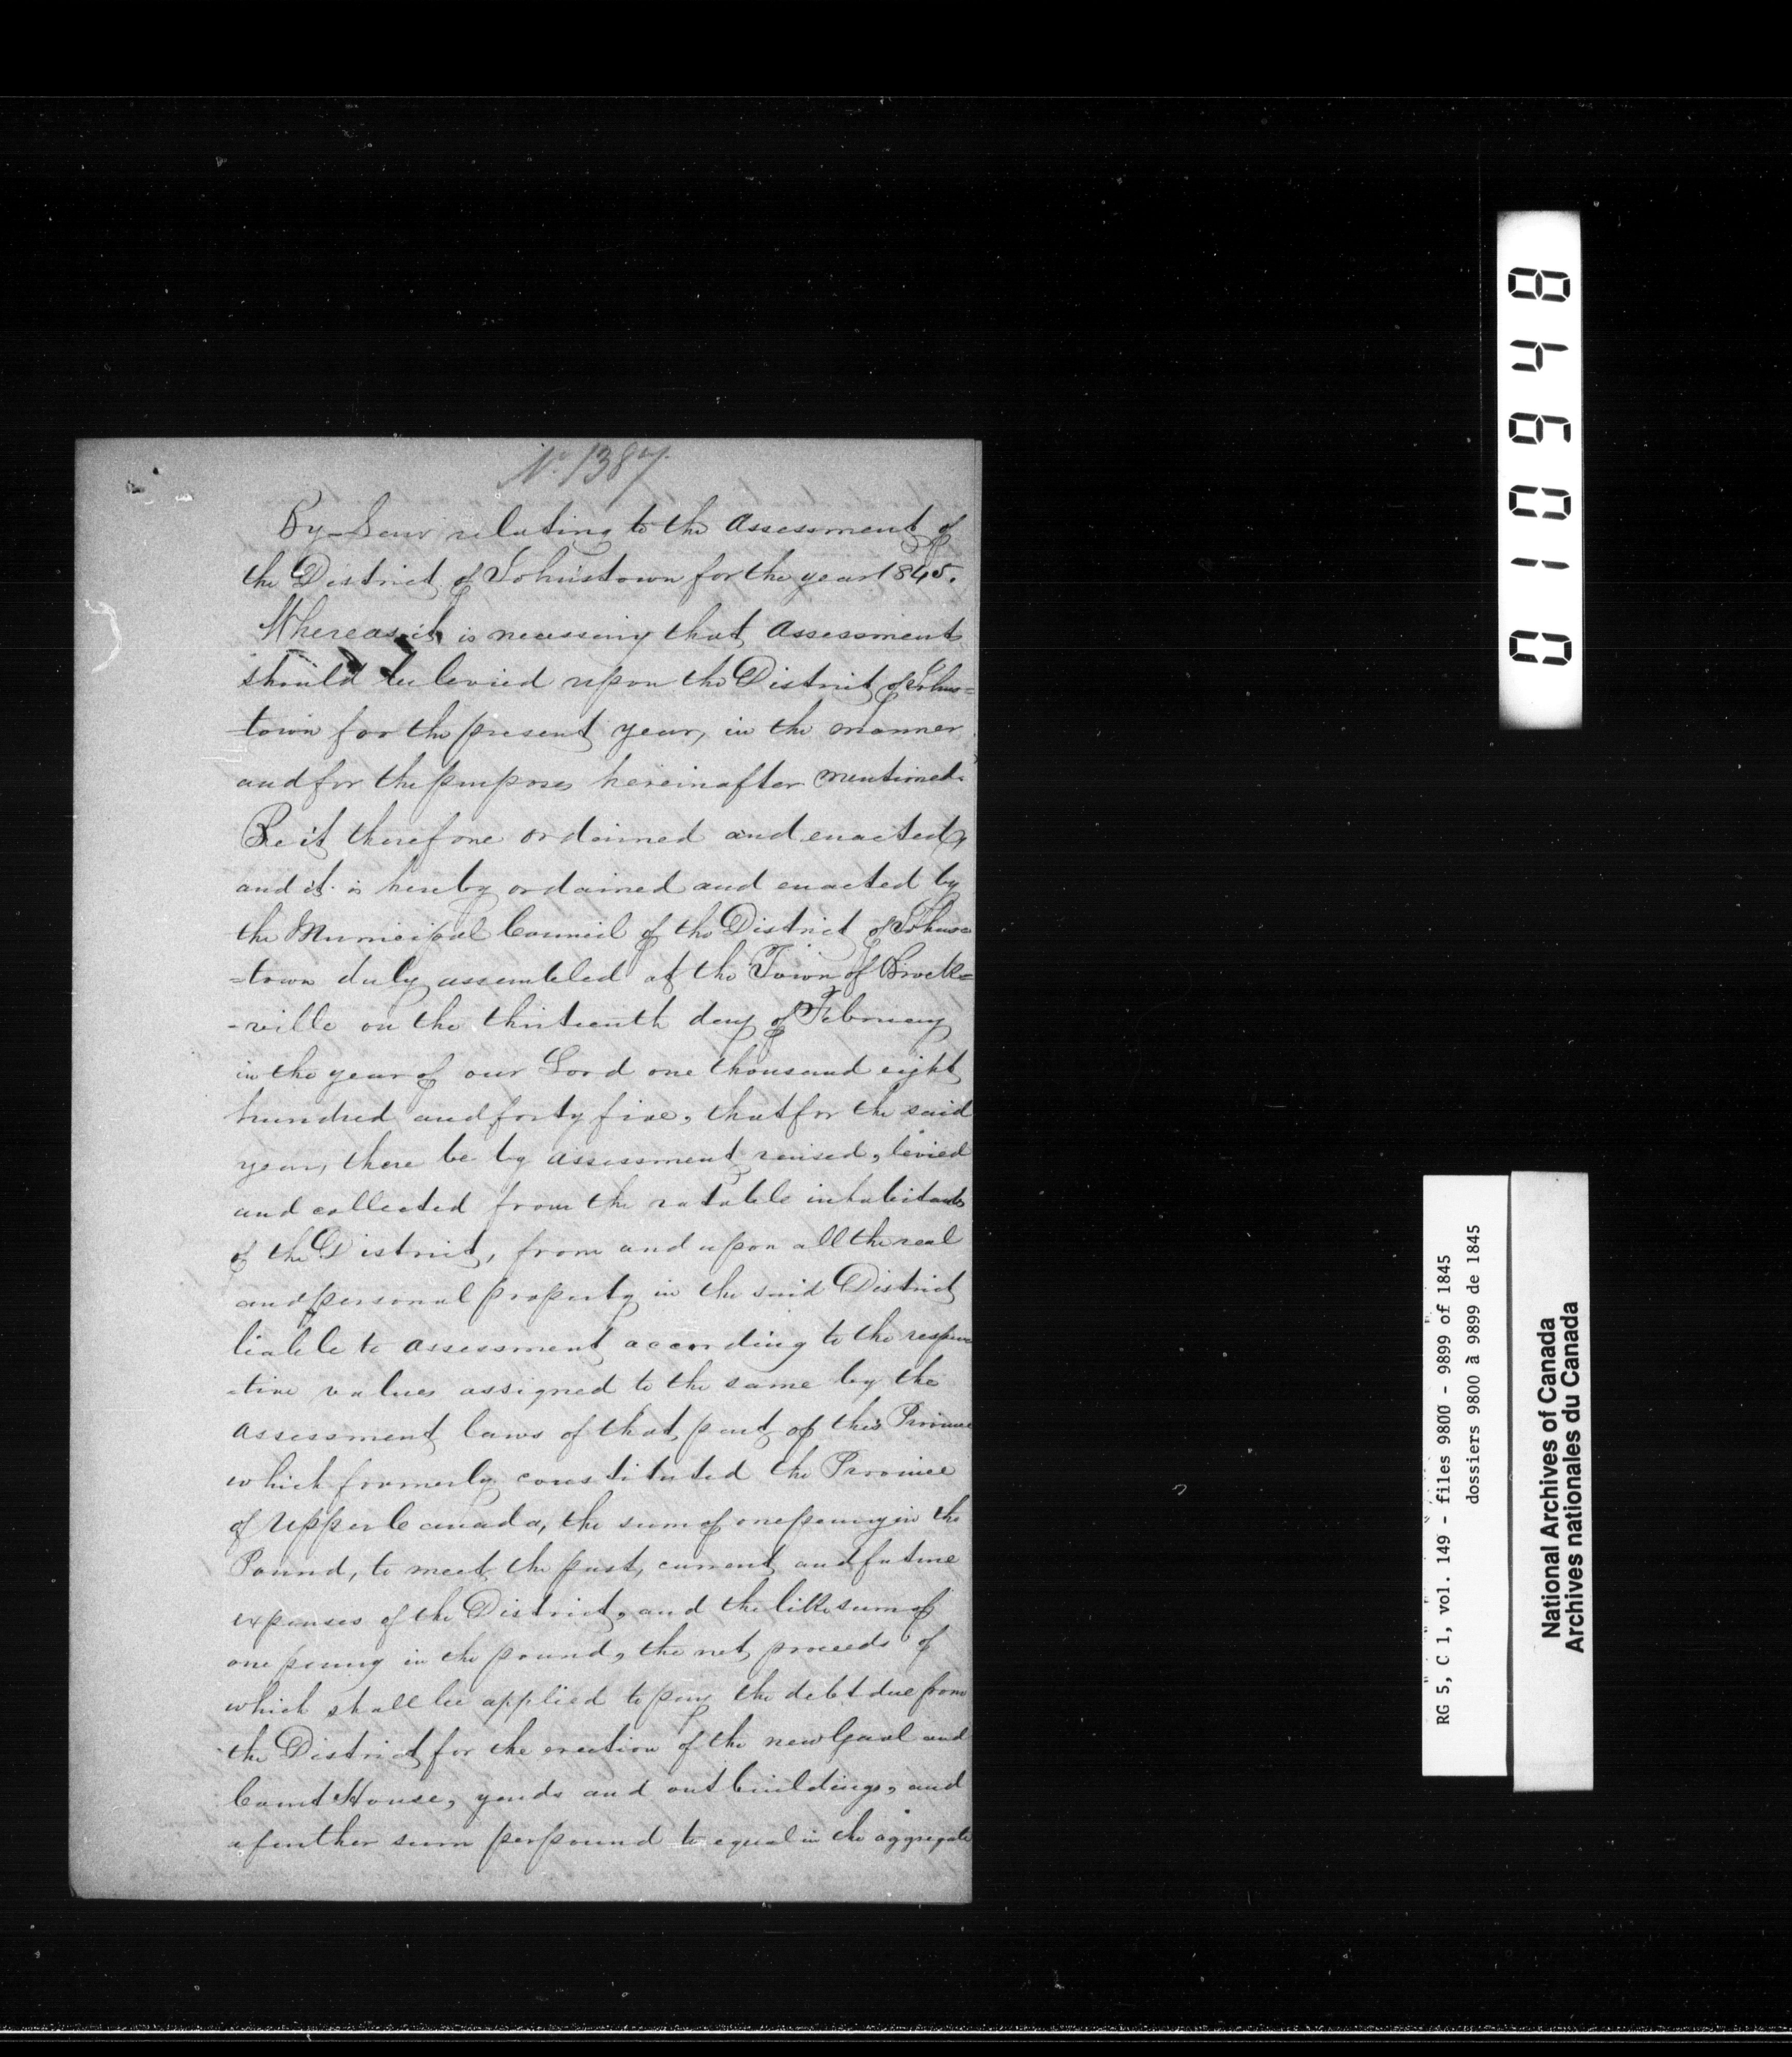 No. 1387.
By-Law relating to the Assessment of
the District of Johnstown for the year 1845.
Whereas it is necessary that Assessments
should be levied upon the District of Johns=
town for the present year, in the manner
and for the purposes hereinafter mentioned.
Be it therefore ordained and enacted,
and it is hereby ordained and enacted by
the Municipal Council of the District of Johns=
=town duly assembled at the Town of Brock=
-ville on the thirteenth day of February
in the year of our Lord one thousand eight
hundred and forty five, that for the said
year, there be by assessment raised, levied
and collected from the ratable inhabitants
of the District, from and upon all the real
and personal property in the said District
liable to assessment according to the respec
-tive values assigned to the same by the
assessment laws of that part of this Province
which formerly constituted the Province
of Upper Canada, the sum of one penny in the
Pound, to meet the past, current and future
expenses of the District, and the like sum of
one penny in the pound, the net proceeds of
which shall be applied to pay the debt due from
the District for the erection of the new Gaol and
Court House, yards and outbuildings, and
a further sum per pound to equal in the aggregate
010948
RG 5, C 1, vol. 149 - files 9800 - 9899 of 1845
dossiers 9800 à 9899 de 1845
National Archives of Canada
Archives nationales du Canada